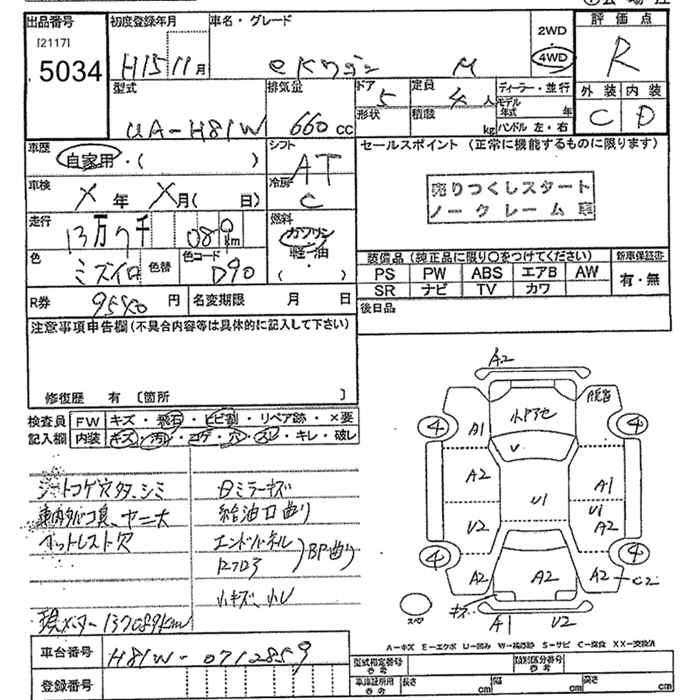 出品番号
[2117]
5034
初度登録年月
H15 11月
車名・グレード
eKワゴン M
2WD
4WD
評価点
R
外装 内装
C D
型式
UA-H81W
排気量
660cc
ドア
5
形状
定員
4人
積載
kg
ディーラー・並行
モデル年式 年
ハンドル 左・右
車歴
自家用・( )
シフト
AT
車検
X年 X月( 日)
冷房
C
走行
13万7千 080km
燃料
ガソリン
軽油
( ・ )
色
ミズイロ
色替
色コード
D90
R券
9540円
名変期限 月 日
セールスポイント (正常に機能するものに限ります)
売りつくしスタート
ノークレーム車
装備品 (純正品に限り○をつけてください)
PS PW ABS エアB AW
SR ナビ TV カワ
新車保証書
有・無
後日品
注意事項申告欄(不具合内容等は具体的に記入して下さい)
修復歴 有 [箇所 ]
検査員記入欄
FW キズ・飛石・ヒビ割・リペア跡・×要
内装 キズ・汚れ・コゲ・穴・スレ・キレ・破レ
シートコゲ穴タ、シミ
車内タバコ臭、ヤニ大
ミラーキズ
給油口曲り
エンドパネル
Rフロア
BP曲り
小キズ、小レ
現メーター137089km
車台番号
H81W-0712859
登録番号
A2
A1
V
A2
V2
A2
U1
A2
A1
U1
A2
A2
C2
キズ
A1
U2
4
4
4
4
A-キズ E-エクボ U-凹み W-補修跡 S-サビ C-腐食 XX-交換済
型式指定番号
参考
類別区分番号
参考
車庫証明用
参考
長さ cm
幅 cm
高さ cm